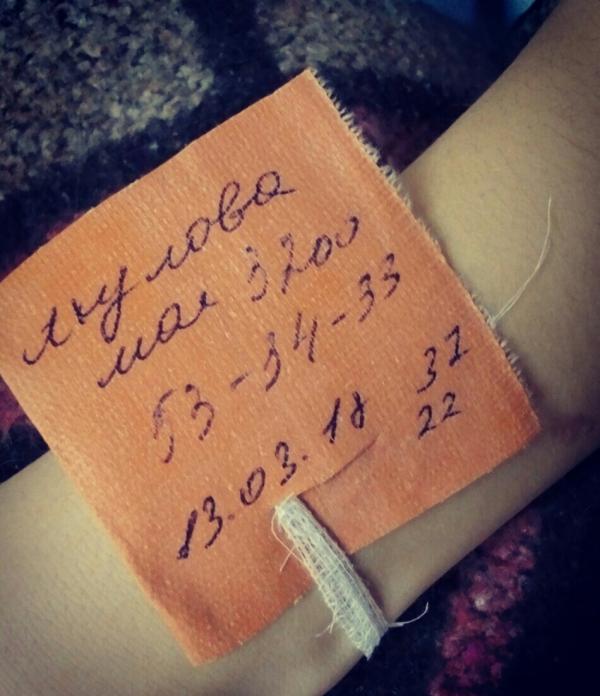 Акулова
мал 3200
53-34-33
13.03.18
22